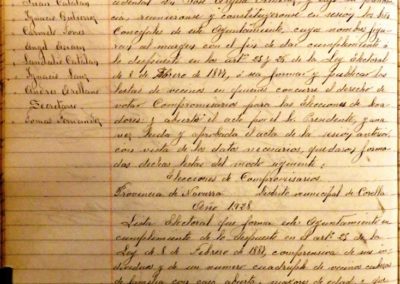 Juan Catalan
Ignacio Gutierrez
Carmelo
Angel
Catalan
Ignacio Sanz
Andres Arellano
Secretario
Tomas Fernandez
reunieronse y constituyeronse en sesion los
Concejales de este Ayuntamiento, cuyos nombres
al margen con el fin de dar cumplimiento a
lo dispuesto en los artos 25 y 26 de la Ley Electoral
de 8 de Febrero de 1877, o sea formar y publicar las
listas de vecinos en quienes concurre el derecho de
votar Compromisarios para las elecciones de
y abierto el acto por el Sr. Presidente, y una
vez leida y aprobada el acta de la sesion anterior
con vista de los datos necesarios, quedaron forma-
das dichas listas del modo siguiente:
Elecciones de Compromisarios
Provincia de Navarra Distrito municipal de Corella
Año 1928
Lista Electoral que forma este Ayuntamiento en
cumplimiento de lo dispuesto en el arto 25 de la
Ley de 8 de Febrero de 1877, comprensiva de sus in-
dividuos y de un numero cuadruple de vecinos cabezas
de familia con casa abierta, mayores de edad, que